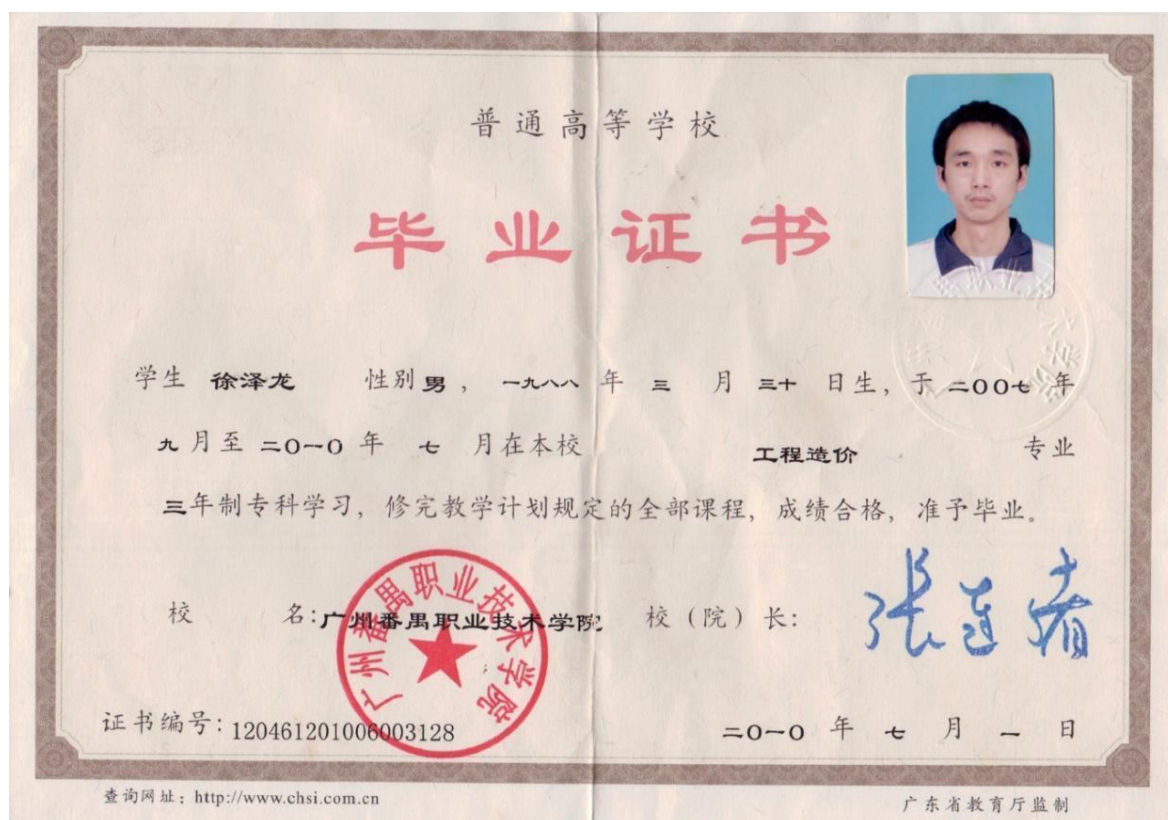 普通高等学校
毕业证书
学生 徐泽龙 性别 男 , 一九八八 年 三 月 三十 日生, 于 二00七 年
九 月至 二0一0 年 七 月在本校 工程造价 专业
三年制专科学习, 修完教学计划规定的全部课程, 成绩合格, 准予毕业。
校 名: 广州番禺职业技术学院 校(院)长:
广州番禺职业技术学院
证书编号: 120461201006003128 二0一0 年 七 月 一 日
查询网址: http://www.chsi.com.cn 广东省教育厅监制